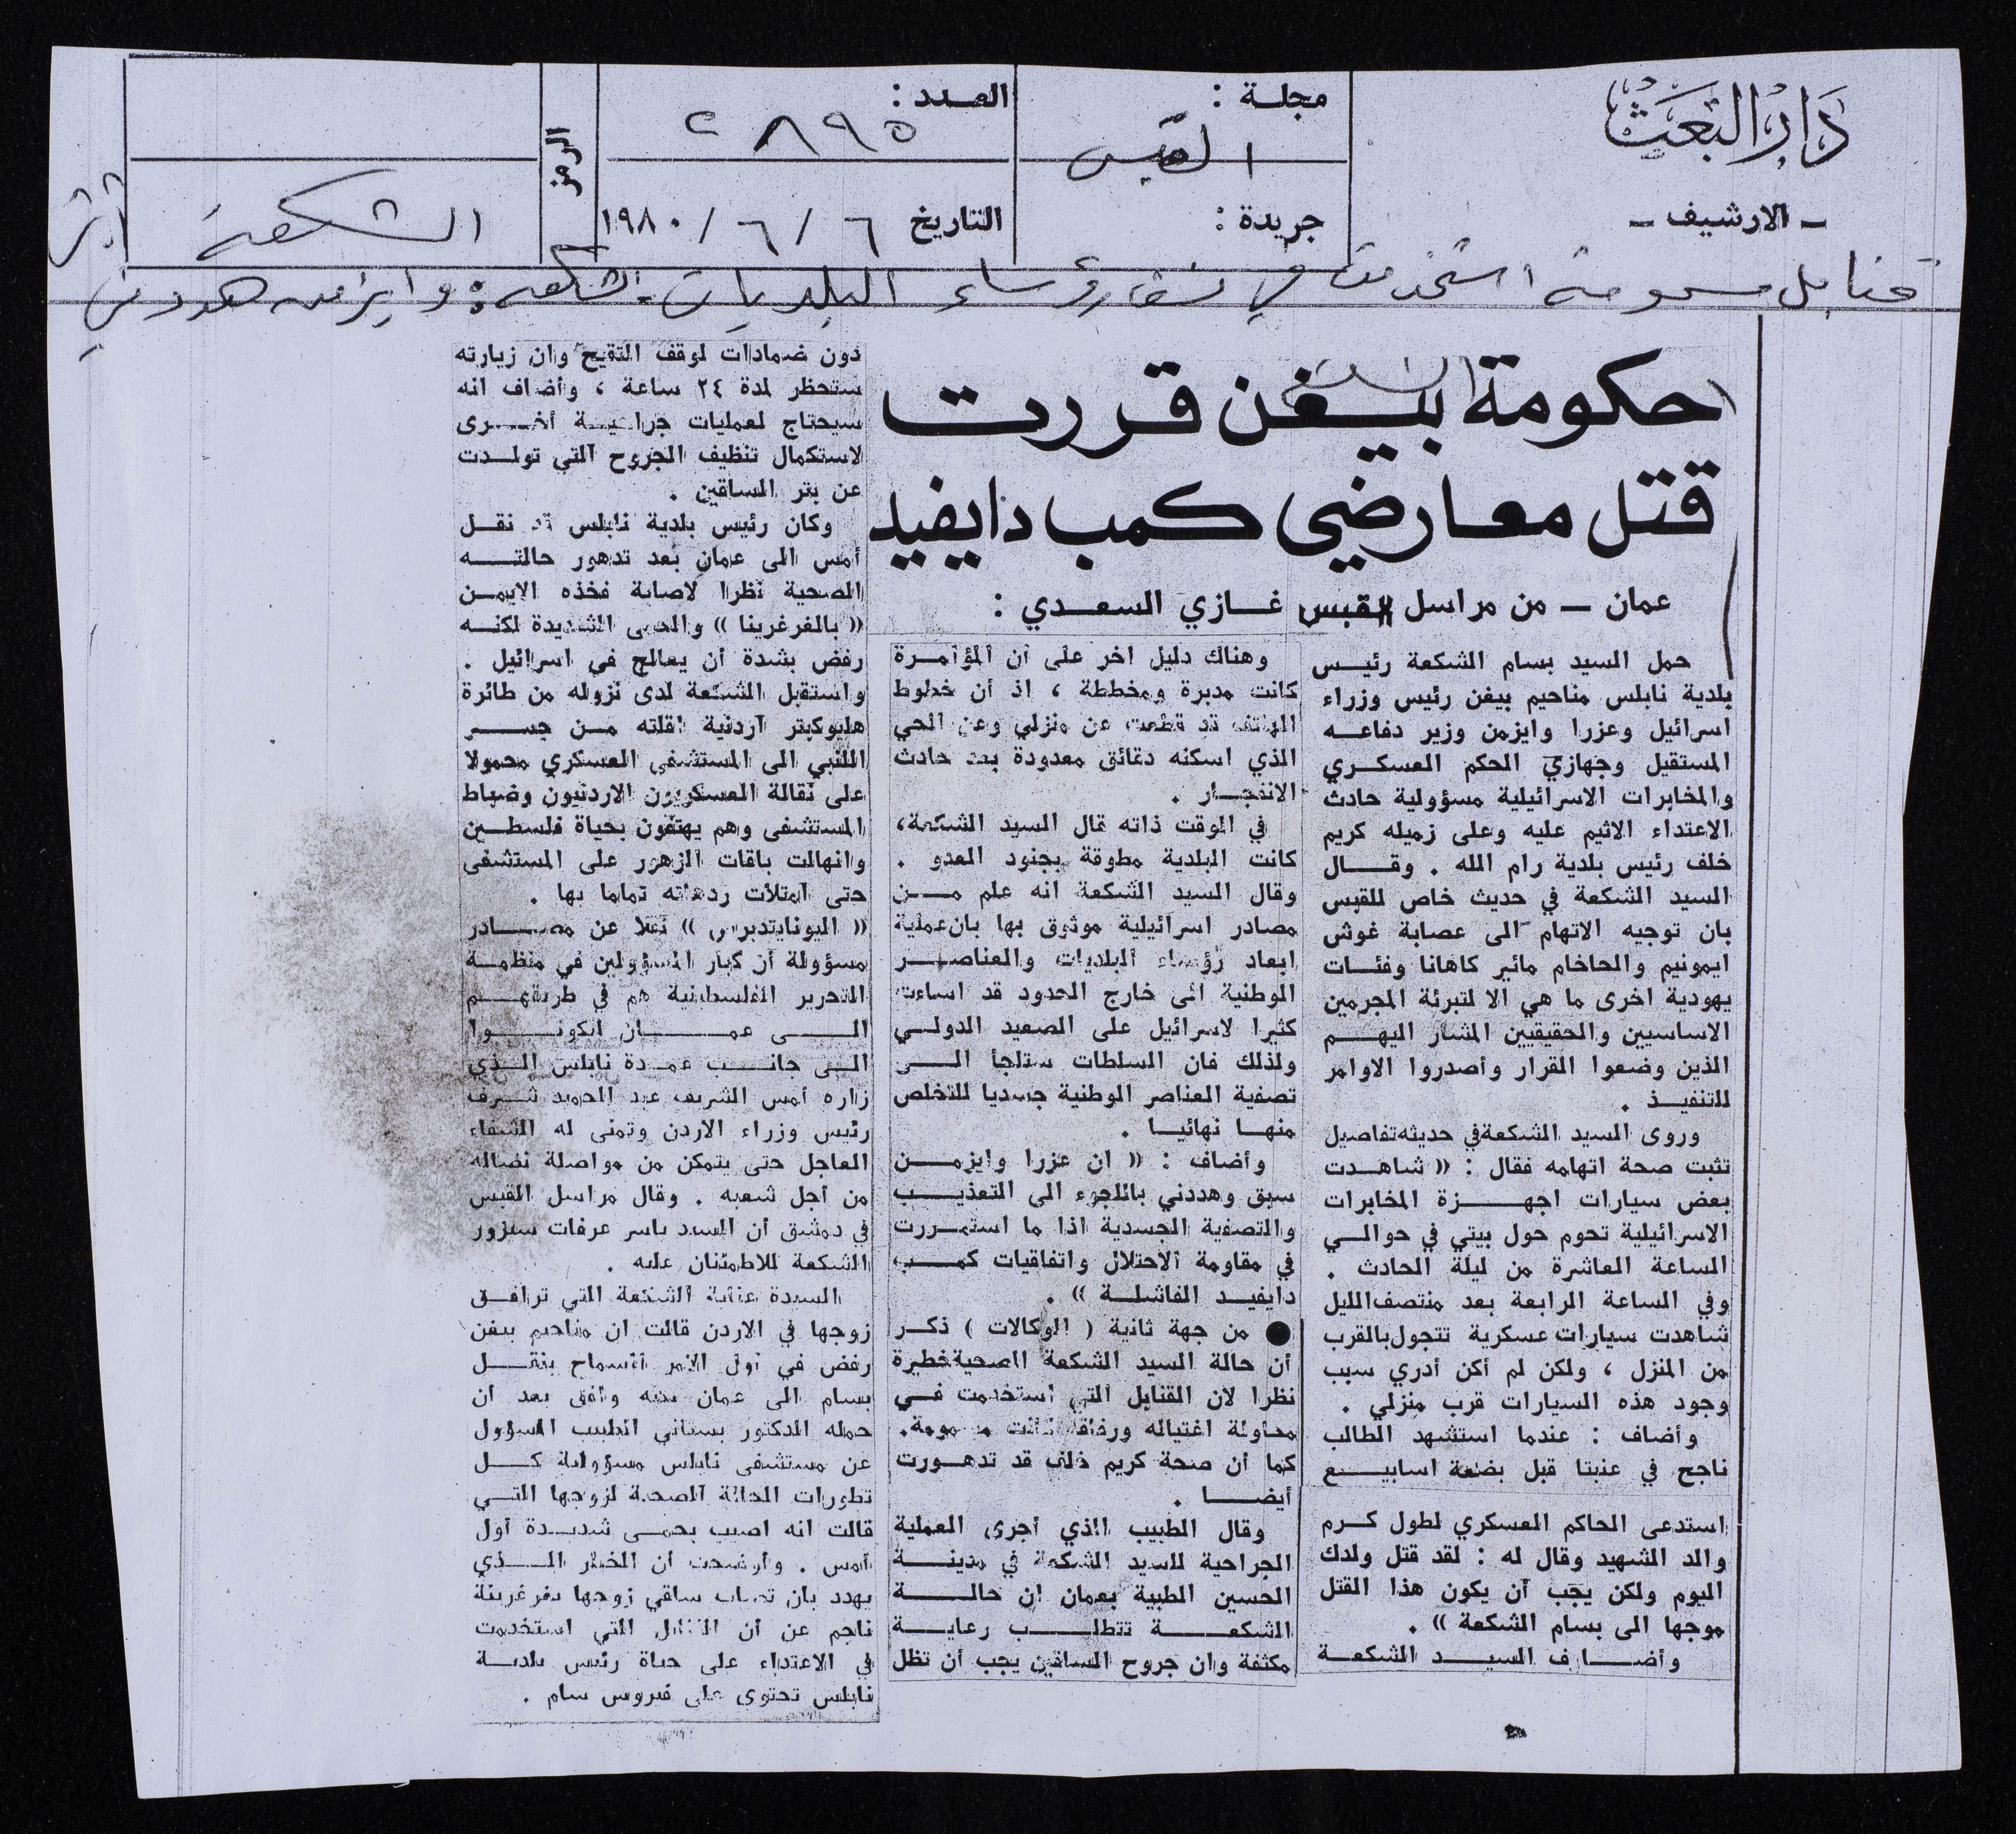 دار البعث
ـ الارشيف ـ
مجلة :
القبس
جريدة :
العدد :
٢٨٩٥
التاريخ ٦ / ٦ / ١٩٨٠
الرمز
الشكعة
قنابل مسمومة استخدمت في نسف رؤساء البلديات
حكومة بيغن قررت
قتل معارضي كمب دايفيد
عمان ــ من مراسل القبس غازي السعدي :
حمل السيد بسام الشكعة رئيس
بلدية نابلس مناحيم بيغن رئيس وزراء
اسرائيل وعزرا وايزمن وزير دفاعه
المستقيل وجهازي الحكم العسكري
والمخابرات الاسرائيلية مسؤولية حادث
الاعتداء الاثيم عليه وعلى زميله كريم
خلف رئيس بلدية رام الله . وقال
السيد الشكعة في حديث خاص للقبس
بان توجيه الاتهام الى عصابة غوش
ايمونيم والحاخام مائير كاهانا وفئات
يهودية اخرى ما هي الا لتبرئة المجرمين
الاساسيين والحقيقيين المشار اليهم
الذين وضعوا القرار وأصدروا الاوامر
للتنفيذ .
وروى السيد الشكعة في حديثه تفاصيل
تثبت صحة اتهامه فقال : « شاهدت
بعض سيارات اجهزة المخابرات
الاسرائيلية تحوم حول بيتي في حوالي
الساعة العاشرة من ليلة الحادث .
وفي الساعة الرابعة بعد منتصف الليل
شاهدت سيارات عسكرية تتجول بالقرب
من المنزل ، ولكن لم أكن أدري سبب
وجود هذه السيارات قرب منزلي .
وأضاف : عندما استشهد الطالب
ناجح في عنبتا قبل بضعة اسابيع
استدعى الحاكم العسكري لطول كرم
والد الشهيد وقال له : لقد قتل ولدك
اليوم ولكن يجب أن يكون هذا القتل
موجها الى بسام الشكعة » .
وأضاف السيد الشكعة
وهناك دليل اخر على أن المؤامرة
كانت مدبرة ومخططة ، اذ أن خطوط
الهاتف قد قطعت عن منزلي وعن الحي
الذي اسكنه دقائق معدودة بعد حادث
الانفجار .
في الوقت ذاته قال السيد الشكعة،
كانت البلدية مطوقة بجنود العدو .
وقال السيد الشكعة انه علم من
مصادر اسرائيلية موثوق بها بان عملية
ابعاد رؤساء البلديات والعناصر
الوطنية الى خارج الحدود قد اساءت
كثيرا لاسرائيل على الصعيد الدولي
ولذلك فان السلطات ستلجأ الى
تصفية العناصر الوطنية جسديا للتخلص
منها نهائيا .
وأضاف : « ان عزرا وايزمن
سبق وهددني باللجوء الى التعذيب
والتصفية الجسدية اذا ما استمررت
في مقاومة الاحتلال واتفاقيات كمب
دايفيد الفاشلة » .
● من جهة ثانية ( الوكالات ) ذكر
أن حالة السيد الشكعة الصحية خطيرة
نظرا لان القنابل التي استخدمت في
محاولة اغتياله ورفاقه كانت مسمومة.
كما أن صحة كريم خلف قد تدهورت
أيضا .
وقال الطبيب الذي أجرى العملية
الجراحية للسيد الشكعة في مدينة
الحسين الطبية بعمان ان حالة
الشكعة تتطلب رعاية
مكثفة وان جروح الساقين يجب أن تظل
دون ضمادات لوقف التقيح وان زيارته
ستحظر لمدة ٢٤ ساعة ، وأضاف انه
سيحتاج لعمليات جراحية أخرى
لاستكمال تنظيف الجروح التي تولدت
عن بتر الساقين .
وكان رئيس بلدية نابلس قد نقل
أمس الى عمان بعد تدهور حالته
الصحية نظرا لاصابة فخذه الايمن
« بالغرغرينا » والحمى الشديدة لكنه
رفض بشدة أن يعالج في اسرائيل .
واستقبل الشكعة لدى نزوله من طائرة
هليوكبتر أردنية اقلته من جسر
اللنبي الى المستشفى العسكري محمولا
على نقالة العسكريون الاردنيون وضباط
المستشفى وهم يهتفون بحياة فلسطين
وانهالت باقات الزهور على المستشفى
حتى امتلأت ردهاته تماما بها .
« اليونايتدبرس » نقلا عن مصادر
مسؤولة أن كبار المسؤولين في منظمة
التحرير الفلسطينية هم في طريقهم
الى عمان ليكونوا
الى جانب عمدة نابلس الذي
زاره أمس الشريف عبد الحميد شرف
رئيس وزراء الاردن وتمنى له الشفاء
العاجل حتى يتمكن من مواصلة نضاله
من أجل شعبه . وقال مراسل القبس
في دمشق أن السيد ياسر عرفات سيزور
الشكعة للاطمئنان عليه .
السيدة عناية الشكعة التي ترافق
زوجها في الاردن قالت ان مناحيم بيغن
رفض في أول الامر السماح بنقل
بسام الى عمان لكنه وافق بعد أن
حمله الدكتور بستاني الطبيب المسؤول
عن مستشفى نابلس مسؤولية كل
تطورات الحالة الصحية لزوجها التي
قالت انه اصيب بحمى شديدة أول
أمس . وأوضحت أن الخطر الذي
يهدد بان تصاب ساقي زوجها بغرغرينة
ناجم عن أن القنابل التي استخدمت
في الاعتداء على حياة رئيس بلدية
نابلس تحتوي على فيروس سام .